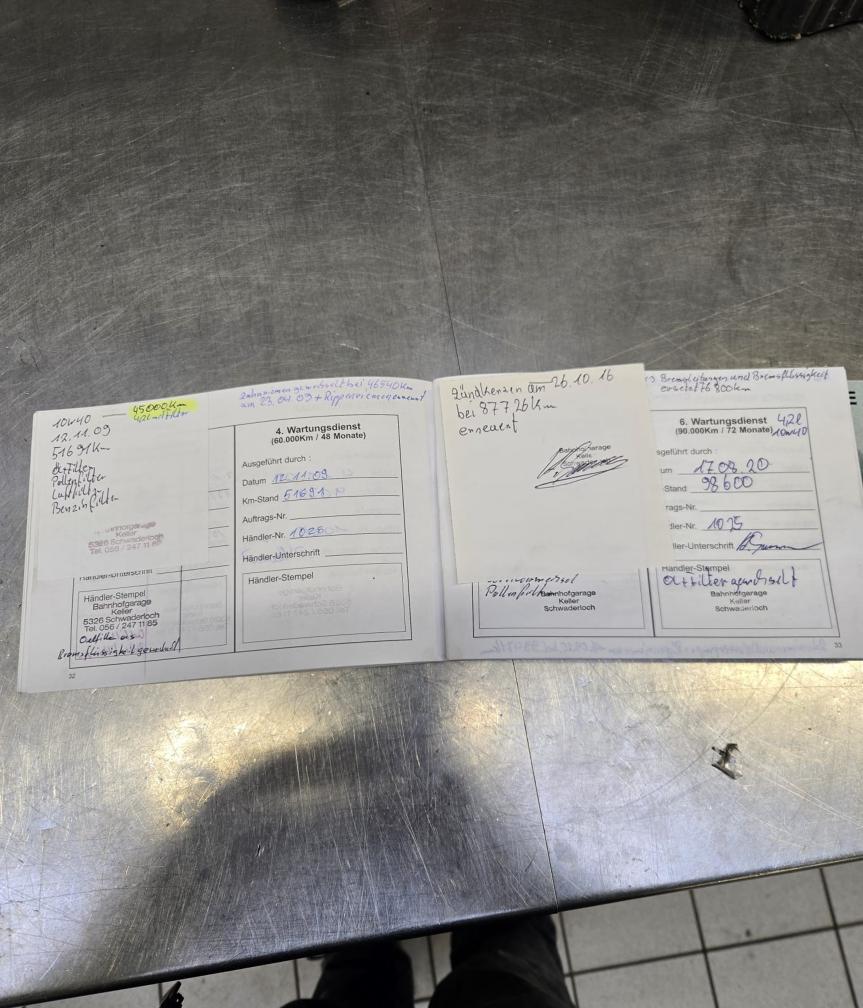 10W40 — 45000Km
12.11.09
51691Km
Ölfilter
Pollenfilter
Luftfilter
Benzinfilter
Keller
5326 Schwaderloch
Tel. 056 / 247 11 85
Händler-Stempel
Bahnhofgarage
Keller
5326 Schwaderloch
Tel. 056 / 247 11 85
Bremsflüssigkeit gewechselt
32
Zahnriemen gewechselt bei 46540Km
am 23.04.09 + Rippenriemen
4. Wartungsdienst
(60.000Km / 48 Monate)
Ausgeführt durch :
Datum 12.11.09
Km-Stand 51691
Auftrags-Nr.
Händler-Nr. 1025
Händler-Unterschrift
Händler-Stempel
Zündkerzen am 26.10.16
bei 87726Km
erneuert
Bahnhofgarage
Pollenfilter
Bahnhofgarage
Keller
Schwaderloch
Bremsleitungen und Bremsflüssigkeit
ersetzt 76 800km
6. Wartungsdienst 4,2l
(90.000Km / 72 Monate) 10W40
sgeführt durch :
um 17.08.20
Stand 98600
rags-Nr.
dler-Nr. 1025
ller-Unterschrift
Händler-Stempel
Ölfilter gewechselt
Bahnhofgarage
Keller
Schwaderloch
33